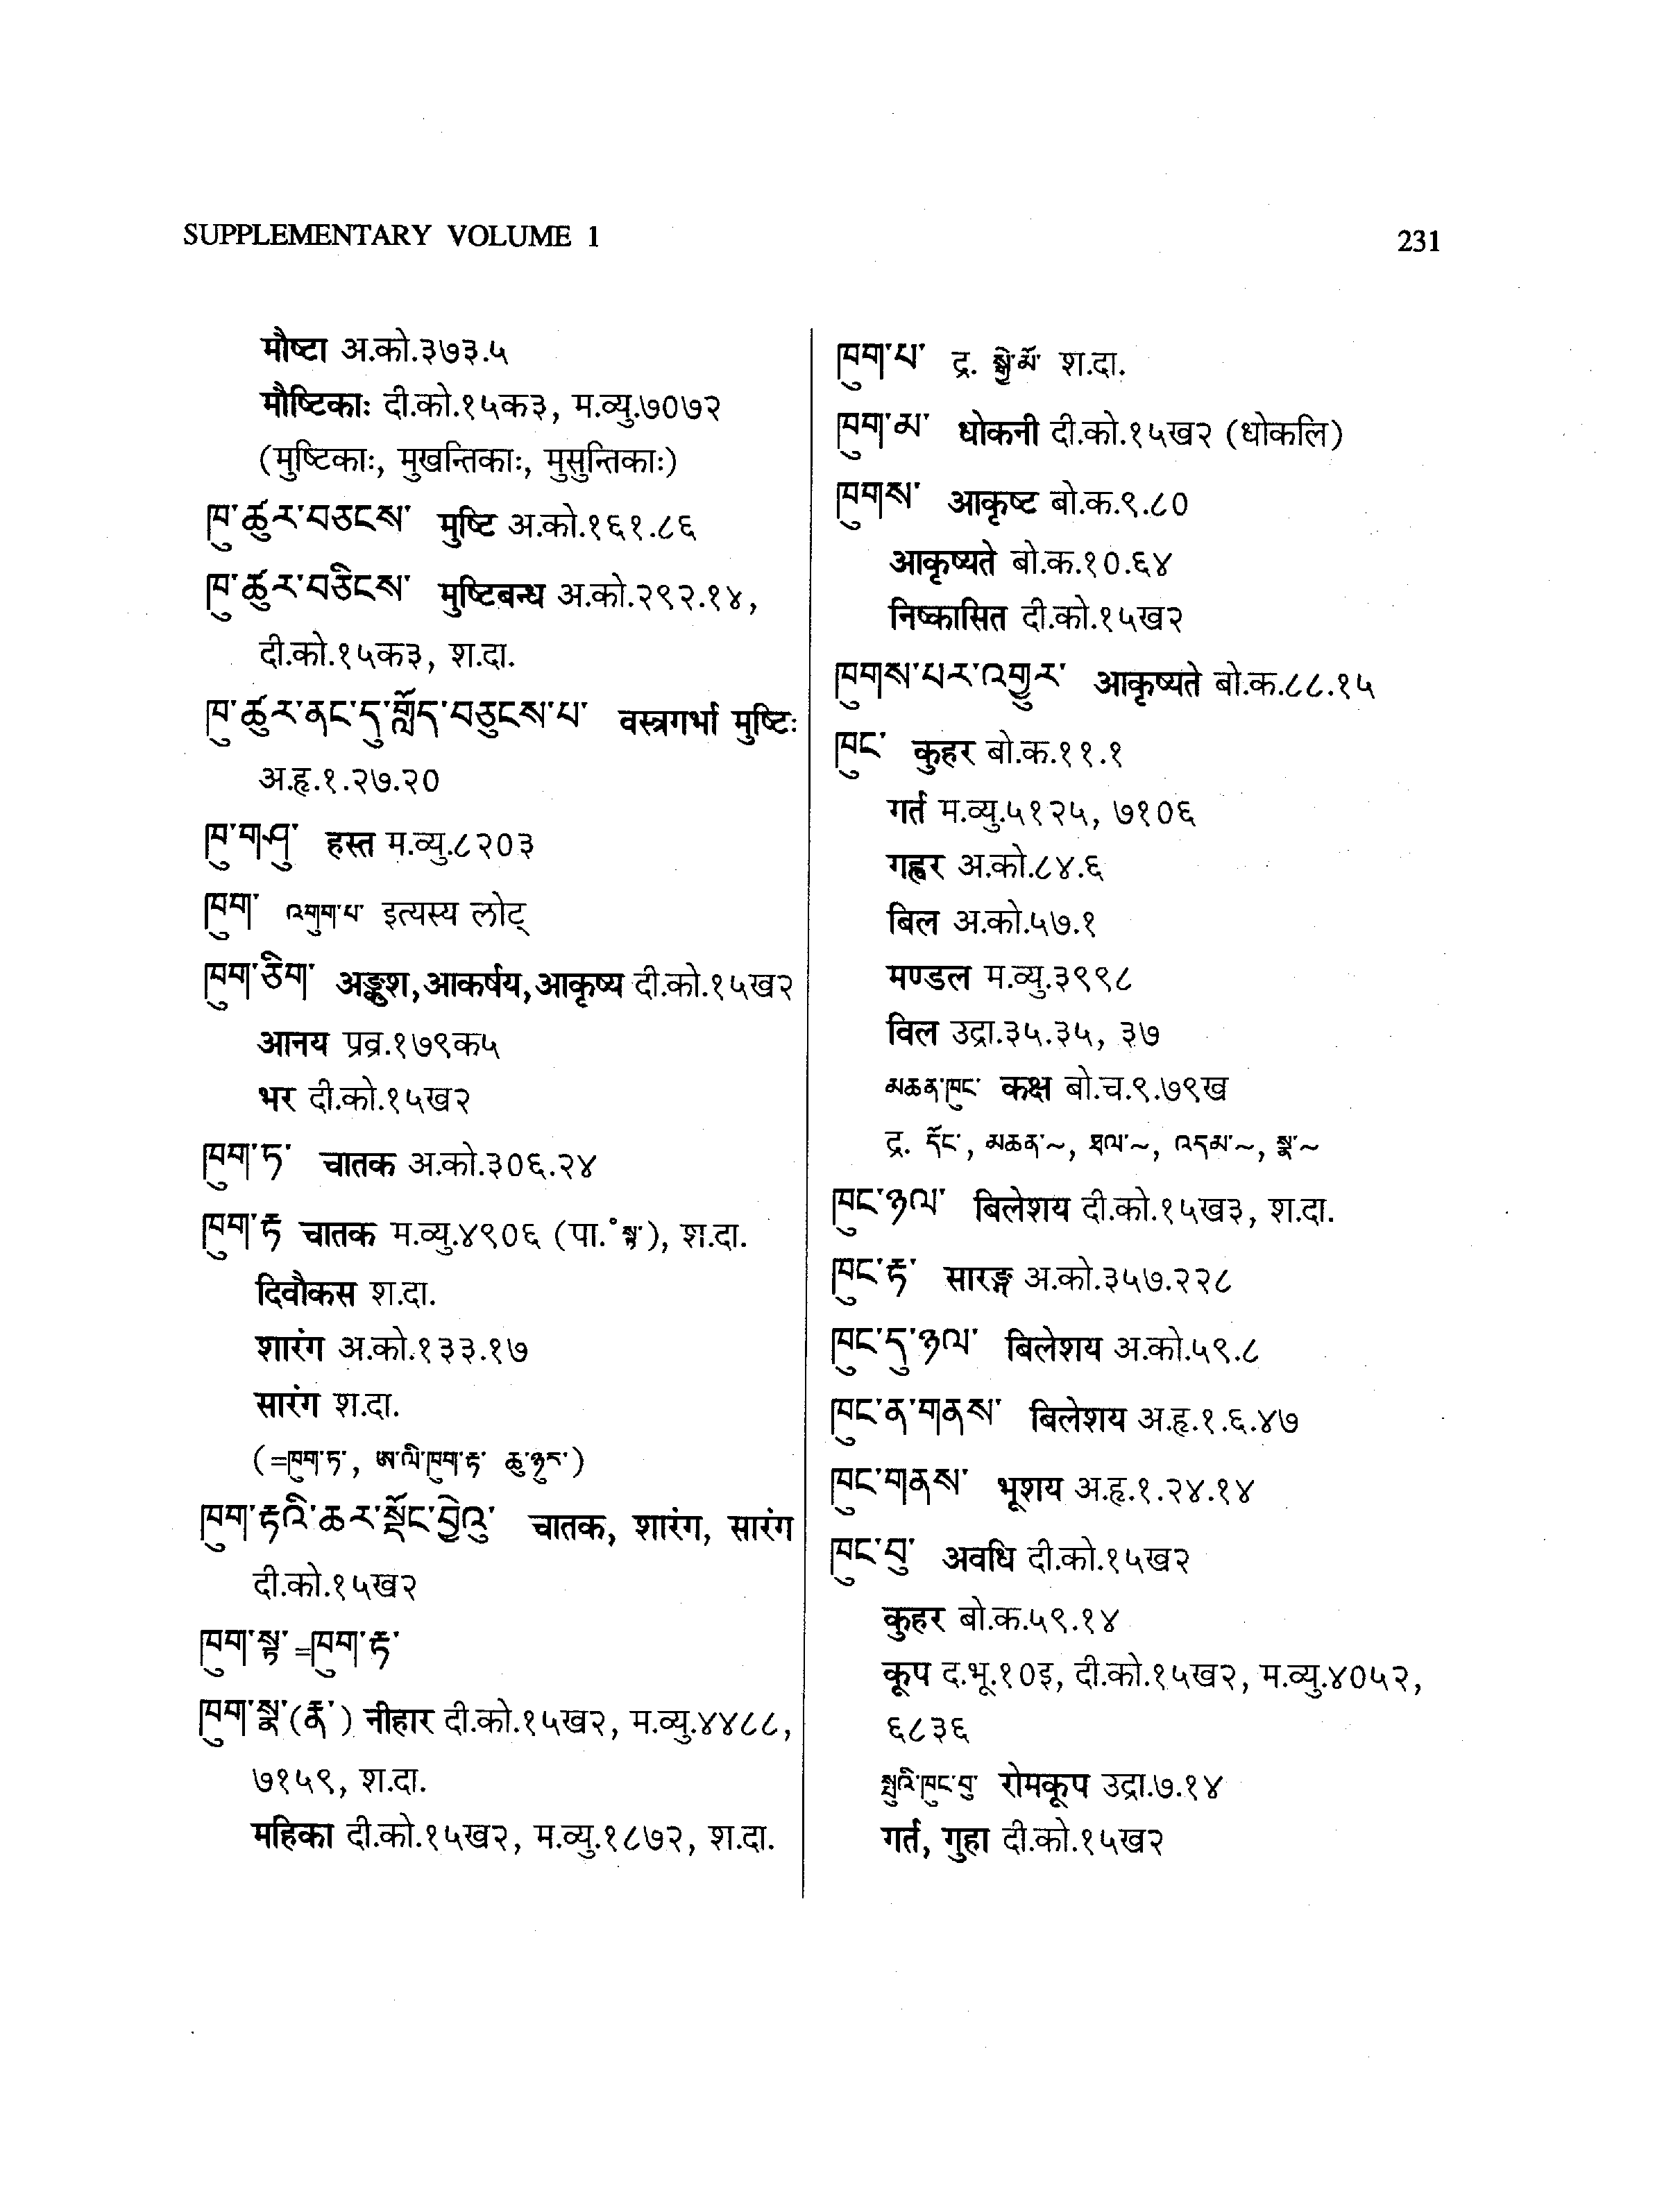 SUPPLEMENTARY VOLUME 1
231
मौष्टा अ.को.३७३.५
मौष्टिकाः दी.को.१५क३, म.व्यु.७०७२
(मुष्टिकाः, मुखन्तिकाः, मुसुन्तिकाः)
ཁུ་ཚུར་བཅངས་ मुष्टि अ.को.१६१.८६
ཁུ་ཚུར་བཅིངས་ मुष्टिबन्ध अ.को.२९२.१४,
दी.को.१५क३, श.दा.
ཁུ་ཚུར་ནང་དུ་གློད་བཅུངས་པ་ वस्त्रगर्भा मुष्टिः
अ.हृ.१.२७.२०
ཁུ་གཤུ་ हस्त म.व्यु.८२०३
ཁུག་ འགུག་པ་ इत्यस्य लोट्
ཁུག་ཅིག་ अङ्कुश,आकर्षय,आकृष्य दी.को.१५ख२
आनय प्रव्र.१७९क५
भर दी.को.१५ख२
ཁུག་ཏ་ चातक अ.को.३०६.२४
ཁུག་རྟ་ चातक म.व्यु.४९०६ (पा.° སྟ་), श.दा.
दिवौकस श.दा.
शारंग अ.को.१३३.१७
सारंग श.दा.
(=ཁུག་ཏ་, ཨ་ལི་ཁུག་རྟ་ ཆུ་ཉུར་)
ཁུག་རྟའི་ཆར་སྡོང་བྱེའུ་ चातक, शारंग, सारंग
दी.को.१५ख२
ཁུག་སྟ་=ཁུག་རྟ་
ཁུག་སྣ་(རྣ་) नीहार दी.को.१५ख२, म.व्यु.४४८८,
७१५९, श.दा.
महिका दी.को.१५ख२, म.व्यु.१८७२, श.दा.
ཁུག་པ་ द्र. སྒྱེ་མོ་ श.दा.
ཁུག་མ་ धोकनी दी.को.१५ख२ (धोकलि)
ཁུགས་ आकृष्ट बो.क.९.८०
आकृष्यते बो.क.१०.६४
निष्कासित दी.को.१५ख२
ཁུགས་པར་འགྱུར་ आकृष्यते बो.क.८८.१५
ཁུང་ कुहर बो.क.११.१
गर्त म.व्यु.५१२५, ७१०६
गह्वर अ.को.८४.६
बिल अ.को.५७.१
मण्डल म.व्यु.३९९८
विल उद्रा.३५.३५, ३७
མཆན་ཁུང་ कक्ष बो.च.९.७९ख
द्र. དོང་, མཆན་~, ཐལ་~, འདམ་~, སྣ་~
ཁུང་ཉལ་ बिलेशय दी.को.१५ख३, श.दा.
ཁུང་རྟ་ सारङ्ग अ.को.३५७.२२८
ཁུང་དུ་ཉལ་ बिलेशय अ.को.५९.८
ཁུང་ན་གནས་ बिलेशय अ.हृ.१.६.४७
ཁུང་གནས་ भूशय अ.हृ.१.२४.१४
ཁུང་བུ་ अवधि दी.को.१५ख२
कुहर बो.क.५९.१४
कूप द.भू.१०इ, दी.को.१५ख२, म.व्यु.४०५२,
६८३६
སྤུའི་ཁུང་བུ་ रोमकूप उद्रा.७.१४
गर्त, गुहा दी.को.१५ख२